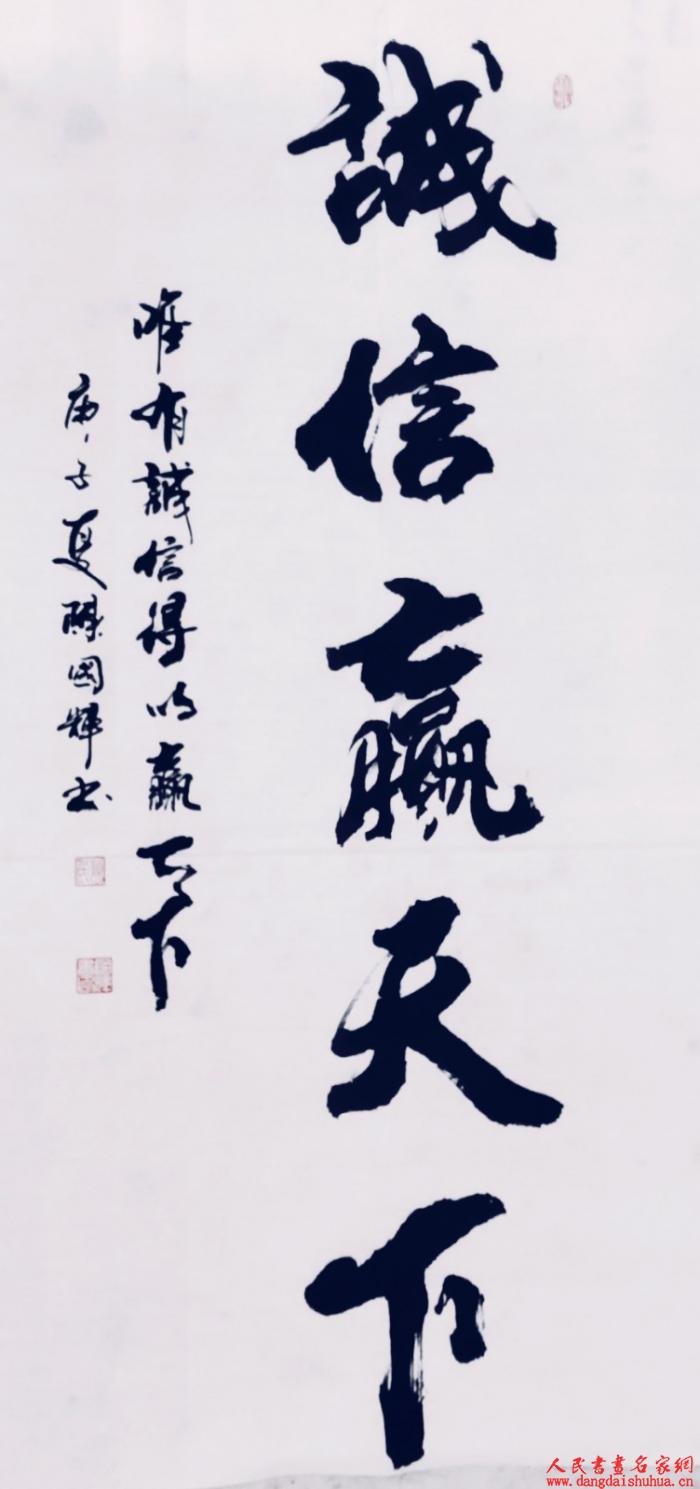 誠信贏天下
唯有誠信得以贏天下
庚子夏陳國輝书
人民書畫名家網
www.dangdaishuhua.cn